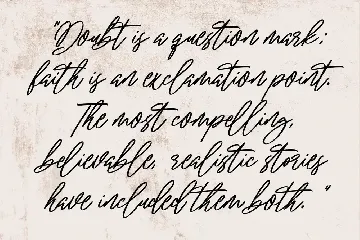 "Doubt is a question mark;
faith is an exclamation point.
The most compelling,
believable, realistic stories
have included them both. "